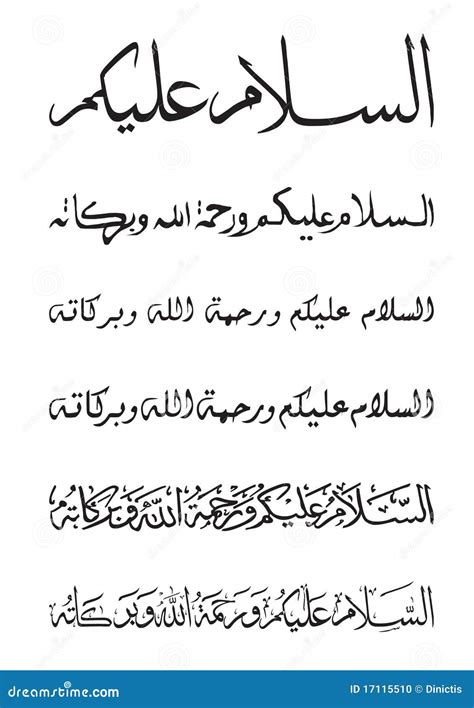 السلام عليكم
السلام عليكم ورحمة الله وبركاته
السلام عليكم ورحمة الله وبركاته
السلام عليكم ورحمة الله وبركاته
السَّلَامُ عَلَيْكُمُ وَرَحْمَةُ اللَّهِ وَبَرَكَاتُهُ
السَّلَامُ عَلَيْكُمُ وَرَحْمَةُ اللَّهِ وَبَرَكَاتُهُ
dreamstime.com ID 17115510 © Dinictis